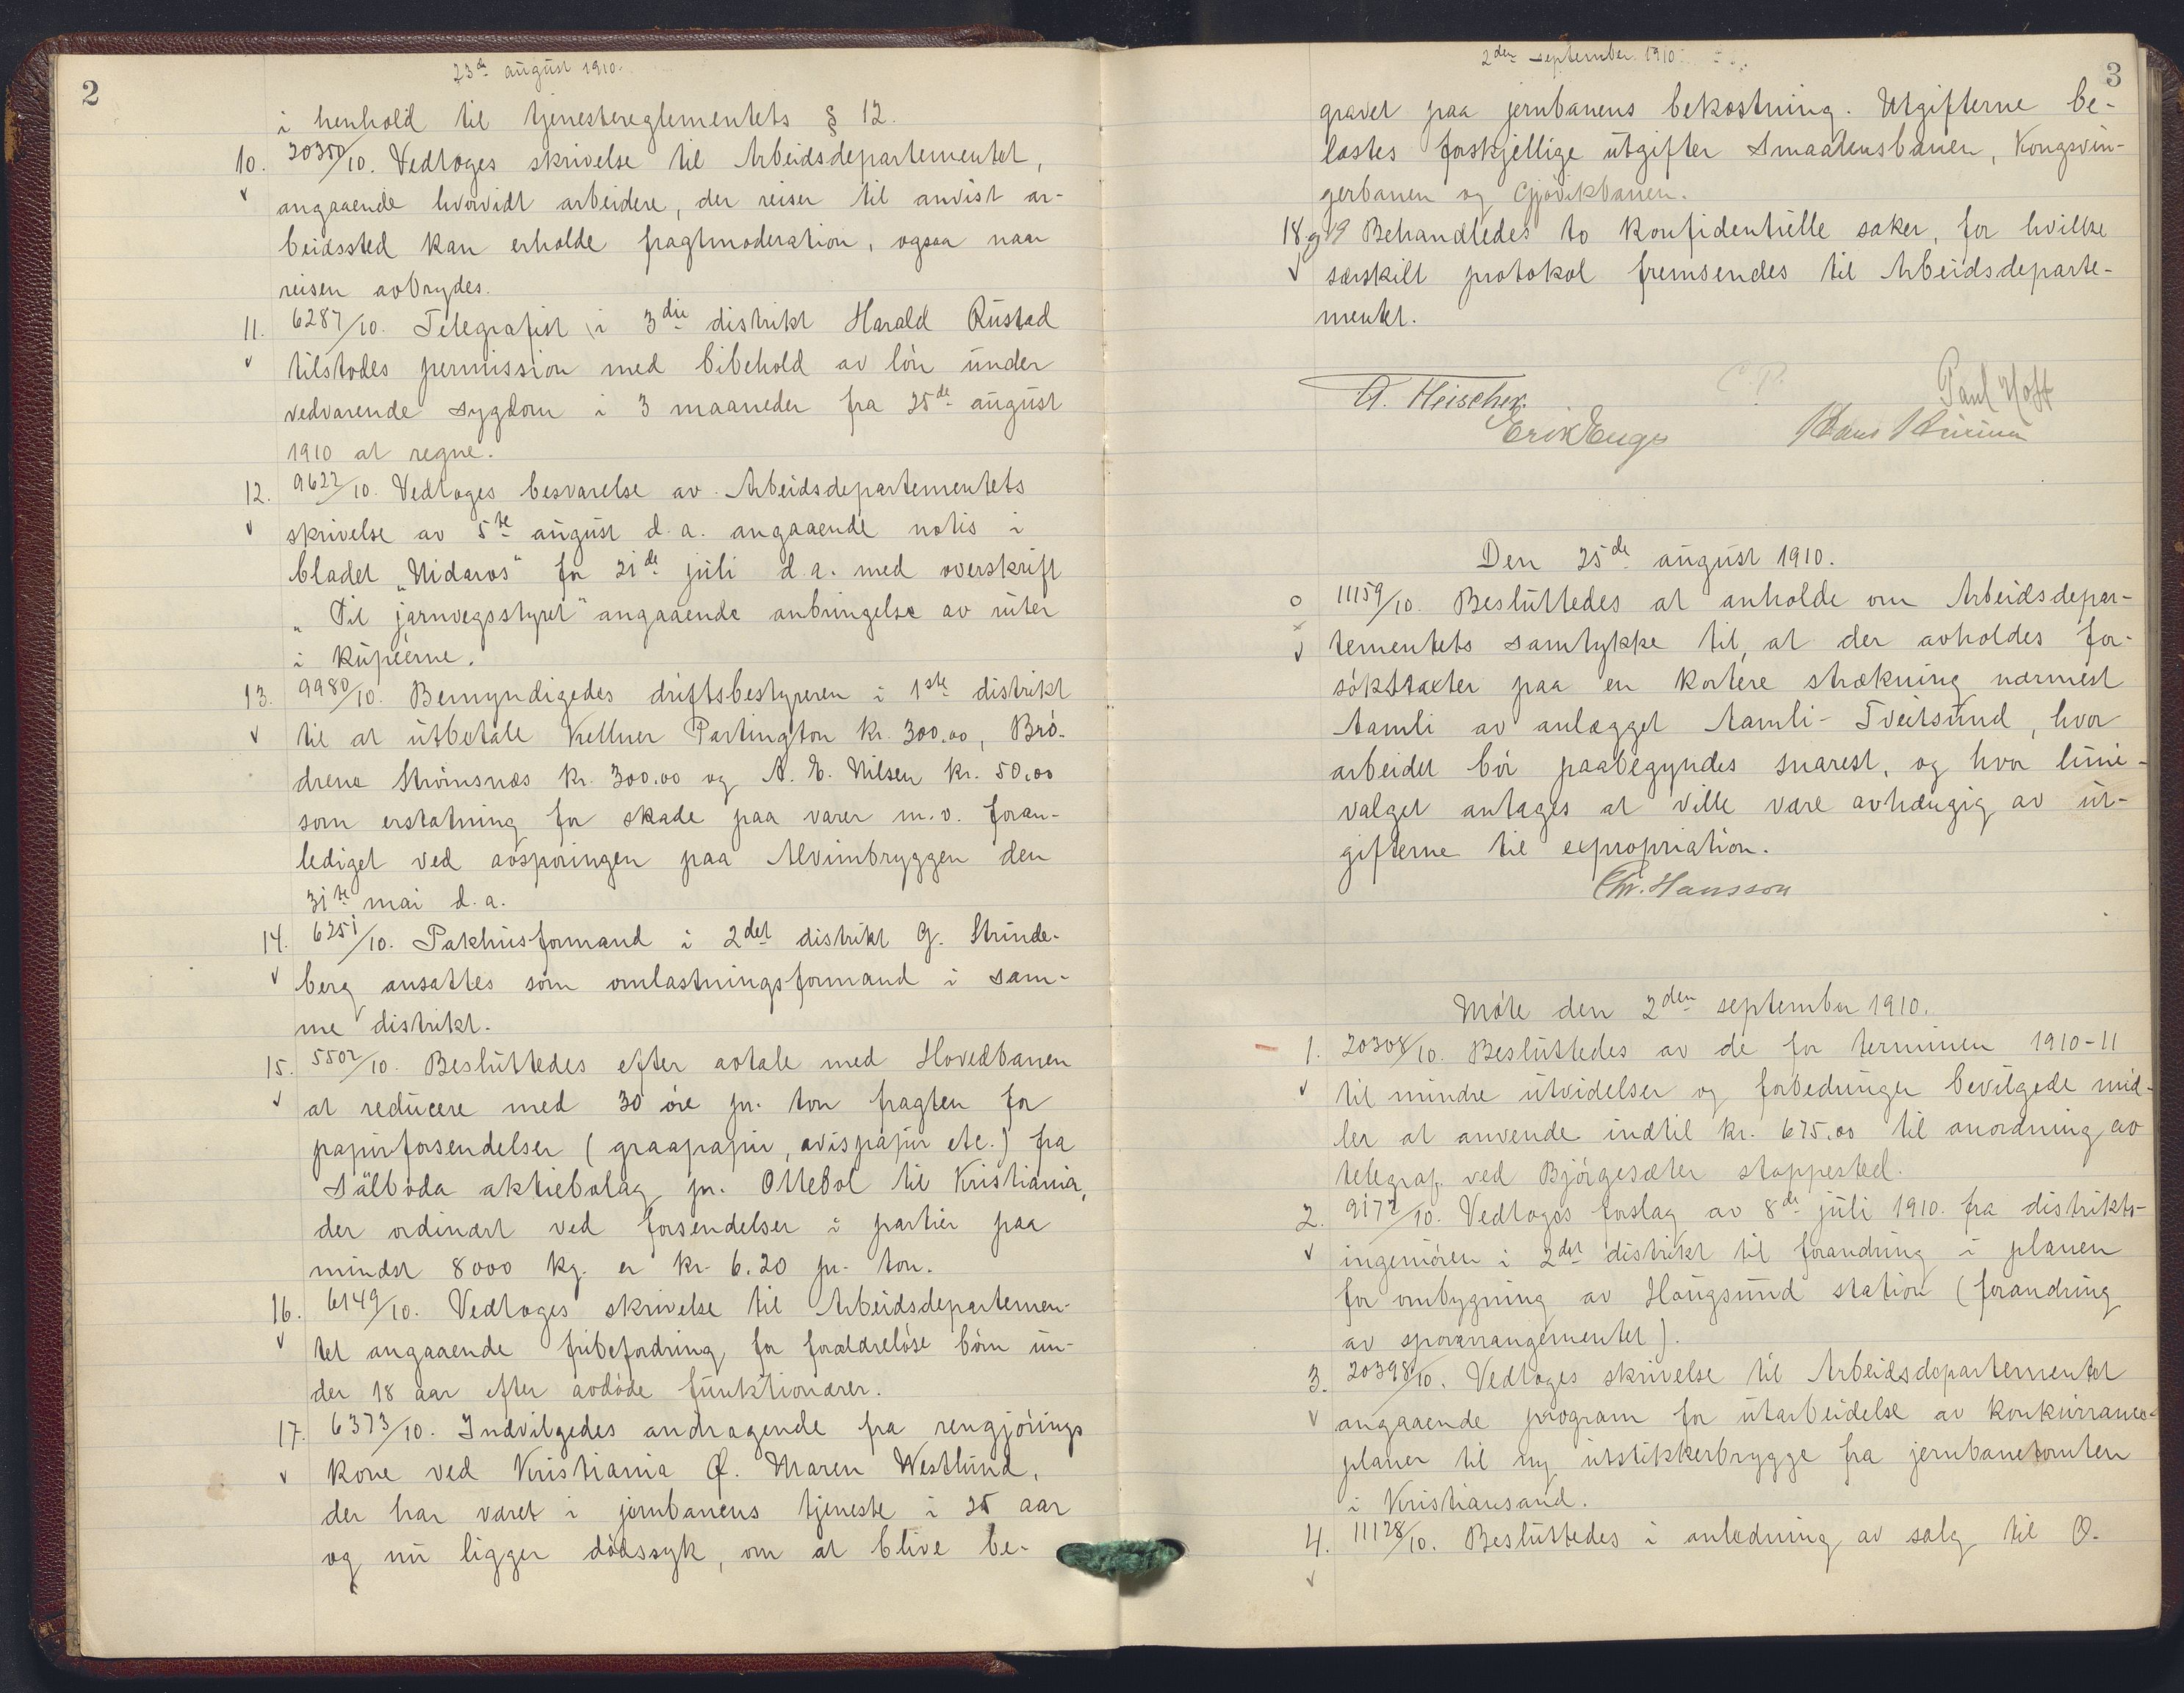 2
23de august 1910.
i henhold til tjenestereglementets § 12.
10. 20350/10. Vedtoges skrivelse til Arbeidsdepartementet,
angaaende hvorvidt arbeidere, der reiser til anvist ar-
beidssted kan erholde fragtmoderation, ogsaa naar
reisen avbrydes.
11. 6287/10. Telegrafist i 3die distrikt Harald Rustad
tilstodes permission med bibehold av løn under
vedvarende sygdom i 3 maaneder fra 25de august
1910 at regne.
12. 9622/10. Vedtoges besvarelse av Arbeidsdepartementets
skrivelse av 5te august d.a. angaaende notis i
bladet "Nidaros" for 21de juli d.a. med overskrift
"Til jarnvegsstyret" angaaende anbringelse av ruter
i kupeerne.
13. 9980/10. Bemyndigedes driftsbestyreren i 1ste distrikt
til at utbetale Kellner Partington kr. 300.00, Brø-
drene Strømsnæs kr. 300.00 og A. E. Nilsen kr. 50.00
som erstatning for skade paa varer m.v. foran-
lediget ved avsporingen paa Alvimbryggen den
31te mai d.a.
14. 6251/10. Pakhusformand i 2det distrikt G. Strinde-
berg ansattes som omlastningsformand i sam-
me distrikt.
15. 5502/10. Besluttedes efter avtale med Hovedbanen
at reducere med 30 øre pr. ton fragten for
papirforsendelser (graapapir, avispapir etc.) fra
Sälboda aktiebolag pr. Ottebol til Kristiania,
der ordinært ved forsendelser i partier paa
mindst 8000 kg. er kr. 6.20 pr. ton.
16. 6149/10. Vedtoges skrivelse til Arbeidsdepartemen-
tet angaaende fribefordring for forældreløse børn un-
der 18 aar efter avdøde funktionærer.
17. 6373/10. Indvilgedes andragende fra rengjørings
kone ved Kristiania Ø. Maren Westlund,
der har været i jernbanens tjeneste i 25 aar
og nu ligger dødssyk, om at blive be-
3
2den september 1910.
gravet paa jernbanens bekostning. Utgifterne be-
lastes forskjellige utgifter Smaalensbanen, Kongsvin-
gerbanen og Gjøvikbanen.
18 og 19 Behandledes to konfidentielle saker, for hvilke
særskilt protokol fremsendes til Arbeidsdeparte-
mentet.
Paul Hoff
Den 25de august 1910.
11159/10. Besluttedes at anholde om Arbeidsdepar-
tementets samtykke til, at der avholdes for-
søkstaxter paa en kortere strækning nærmest
Aamli av anlægget Aamli - Tveitsund, hvor
arbeidet bør paabegyndes snarest, og hvor linie-
valget antages at ville være avhængig av ut-
gifterne til expropriation.
Chr. Hansson
Møte den 2den september 1910.
1. 20308/10. Besluttedes av de for terminen 1910-11
til mindre utvidelser og forbedringer bevilgede mid-
ler at anvende indtil kr. 675.00 til anordning av
telegraf ved Bjørgesæter stoppested.
2. 9172/10. Vedtoges forslag av 8de juli 1910 fra distrikts-
ingeniøren i 2det distrikt til forandring i planen
for ombygning av Haugsund station (forandring
av sporarrangementet).
3. 20398/10. Vedtoges skrivelse til Arbeidsdepartementet
angaaende program for utarbeidelse av konkurranse-
planer til ny utstikkerbrygge fra jernbanetomten
i Kristiansand.
4. 11128/10. Besluttedes i anledning av salg til O.